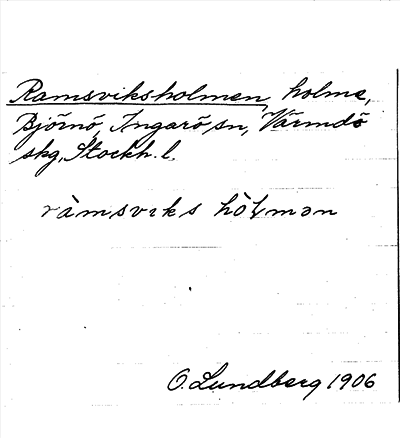 Ramsviksholmen, holme,
Björnö, Ingarö sn, Värmdö
skg, Stockh. l.
ràmsviks hòlmən
O. Lundberg 1906